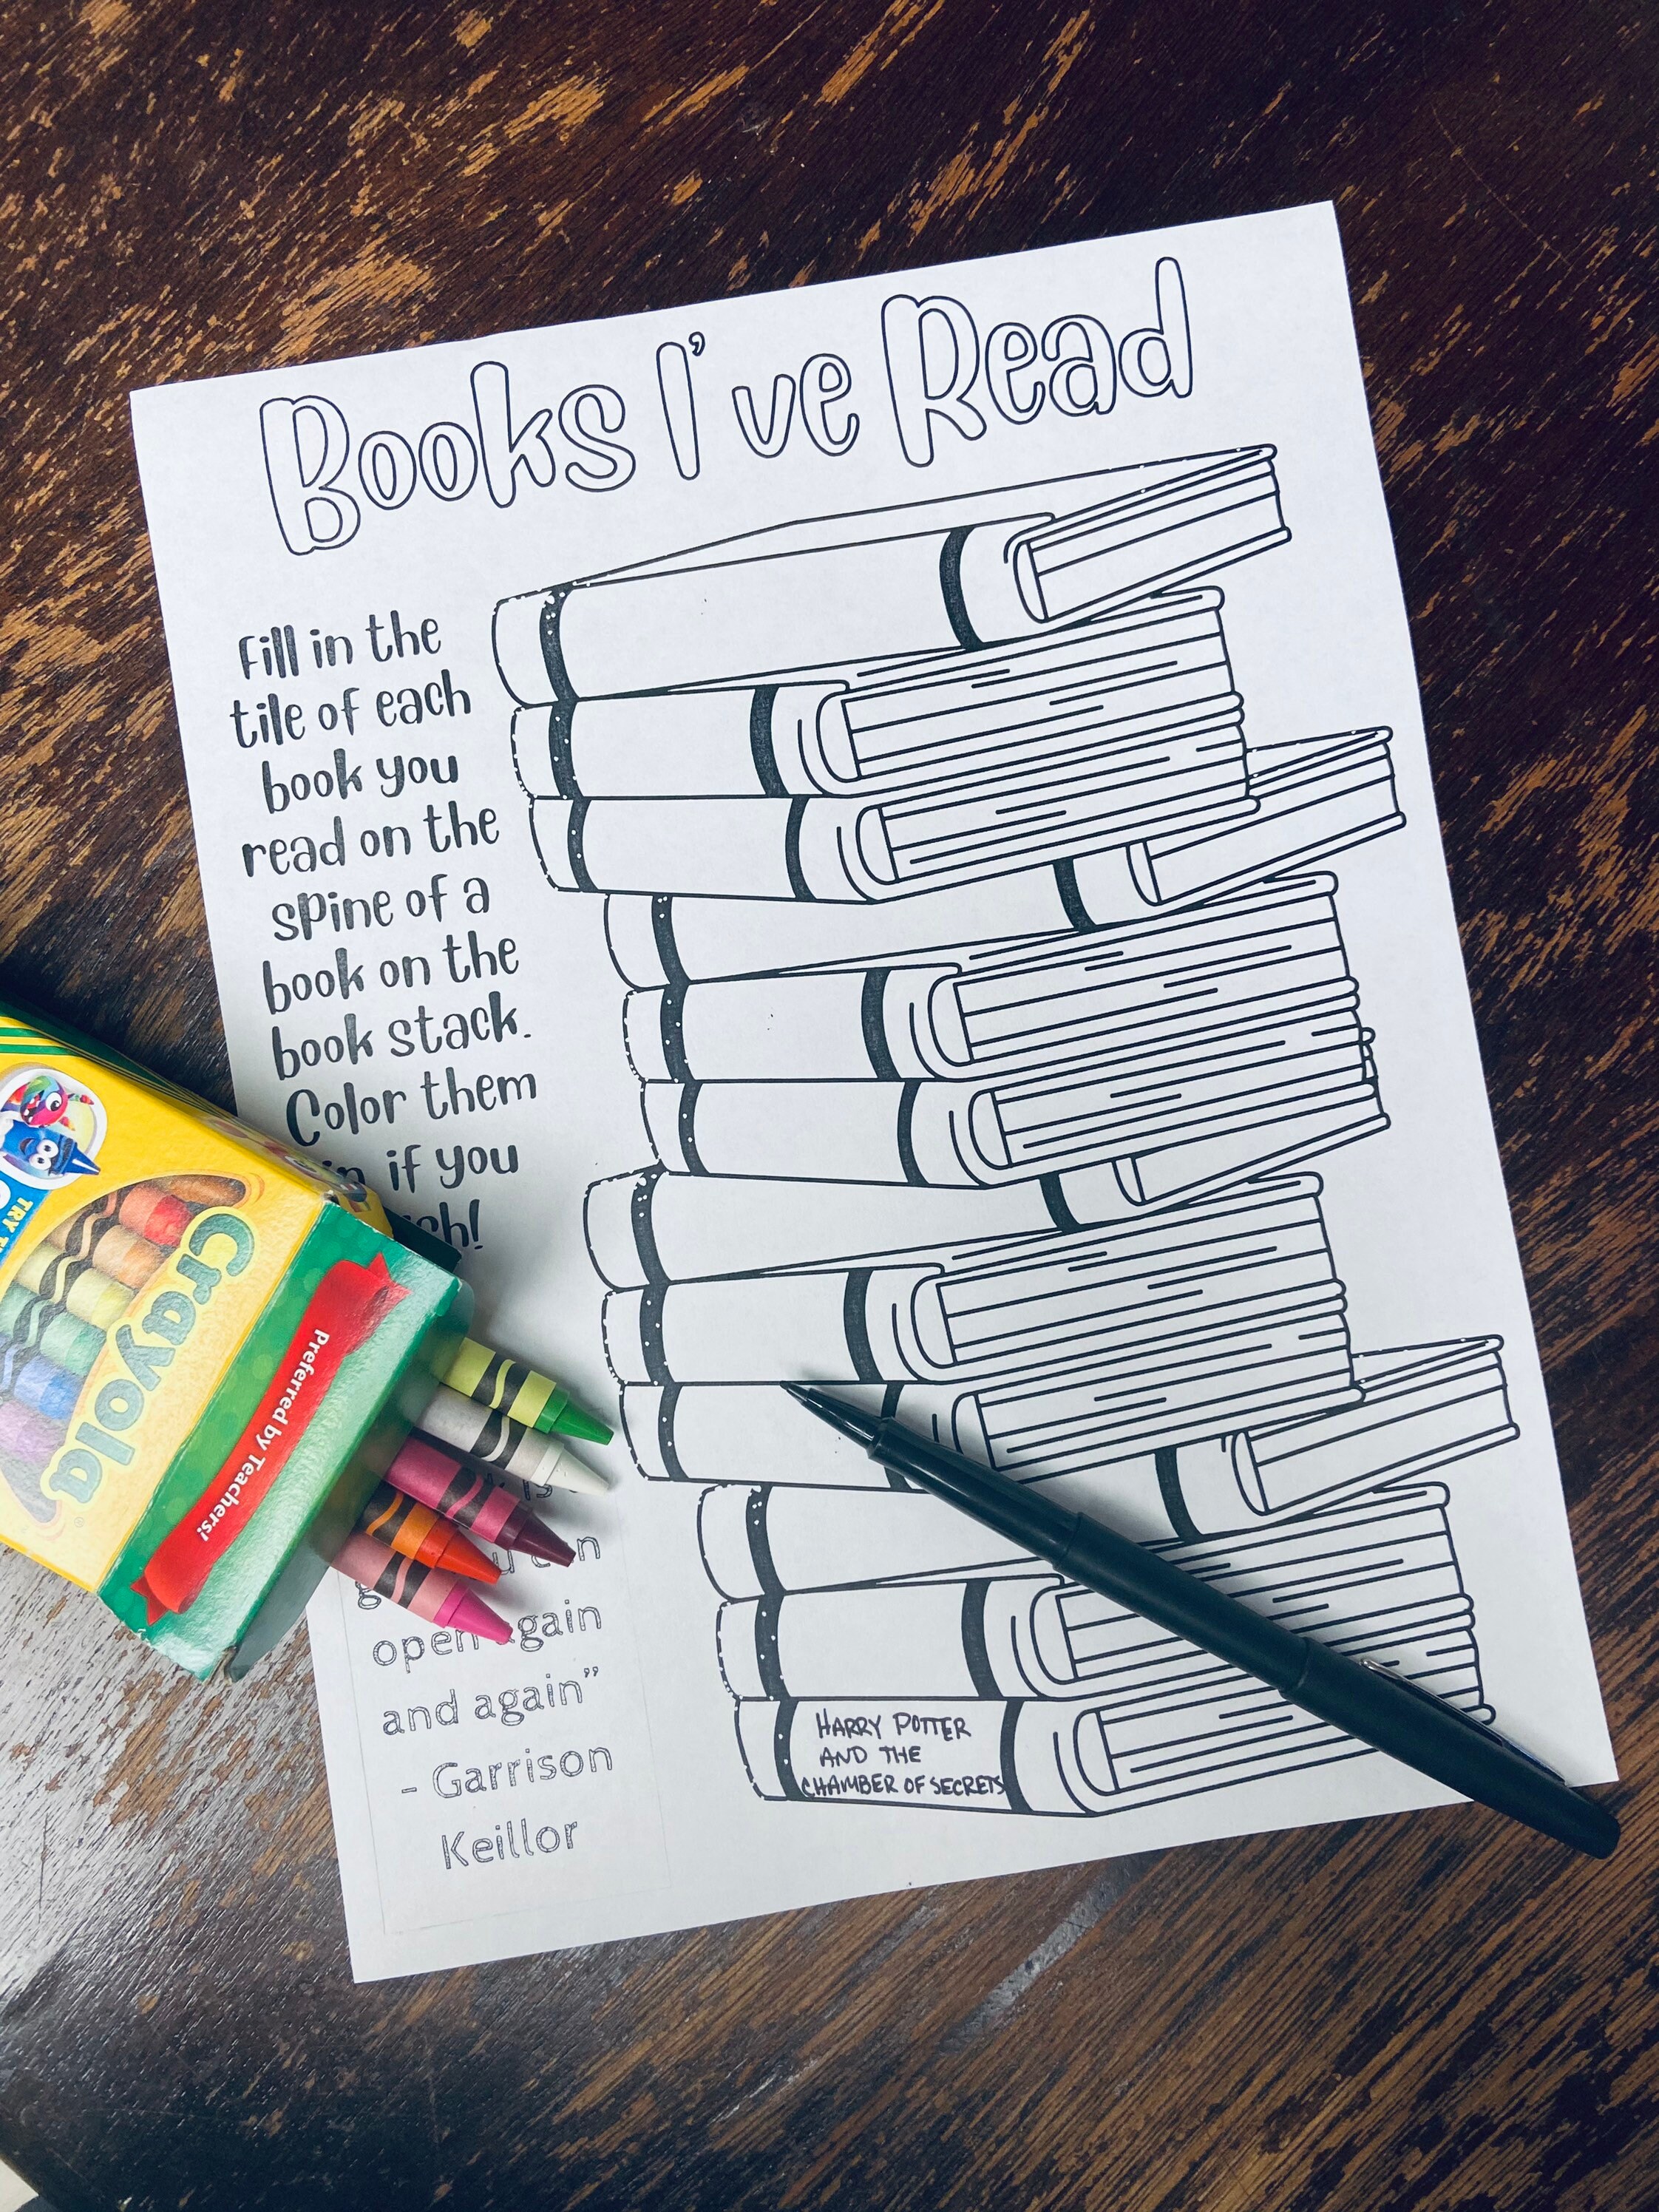 Books I've Read
Fill in the
tile of each
book you
read on the
spine of a
book on the
book stack.
Color them
in if you
open again
and again”
- Garrison
Keillor
HARRY POTTER
AND THE
CHAMBER OF SECRETS
Crayola
Preferred by Teachers!
TRY